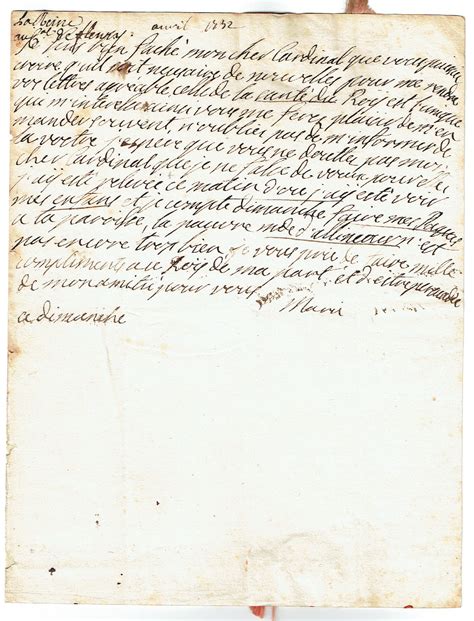 La Reine
au C.^l de fleury. avril 1732
Je suis bien faché mon cher Cardinal que vous puissie
croire quil soit necessaire de nouvelles pour me rendre
vos lettres agreable celle de la santé du Roy est l'unique
qui m'interesse ainsi vous me feres plaisir de m'en
mander souvent, n'oublies pas de m'informer de
la votre j'espere que vous ne doutes pas mon
cher Cardinal que je ne fasse de voeux pour
j'ay esté relevée ce matin d'ou j'ay esté voir
mes enfans et je compte dimanche faire mes Paques
a la paroisse, la pauvre n'est
pas encore trop bien je vous prie de faire mille
compliments au Roy de ma part et d'estre persuadé
de mon amitié pour vous
Marie
a dimanche